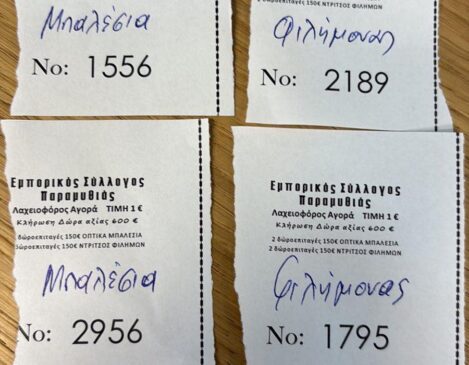 Μπαλέσια
No: 1556
2 δωροεπιταγές 150€ ΝΤΡΙΤΣΟΣ ΦΙΛΗΜΩΝ
Φιλήμονας
No: 2189
Εμπορικός Σύλλογος
Παραμυθιάς
Λαχειοφόρος Αγορά ΤΙΜΗ 1 €
Κλήρωση Δώρα αξίας 600 €
δωροεπιταγές 150€ ΟΠΤΙΚΑ ΜΠΑΛΕΣΙΑ
δωροεπιταγές 150€ ΝΤΡΙΤΣΟΣ ΦΙΛΗΜΩΝ
Μπαλέσια
No: 2956
Εμπορικός Σύλλογος
Παραμυθιάς
Λαχειοφόρος Αγορά ΤΙΜΗ 1 €
Κλήρωση Δώρα αξίας 600 €
2 δωροεπιταγές 150€ ΟΠΤΙΚΑ ΜΠΑΛΕΣΙΑ
2 δωροεπιταγές 150€ ΝΤΡΙΤΣΟΣ ΦΙΛΗΜΩΝ
Φιλήμονας
No: 1795